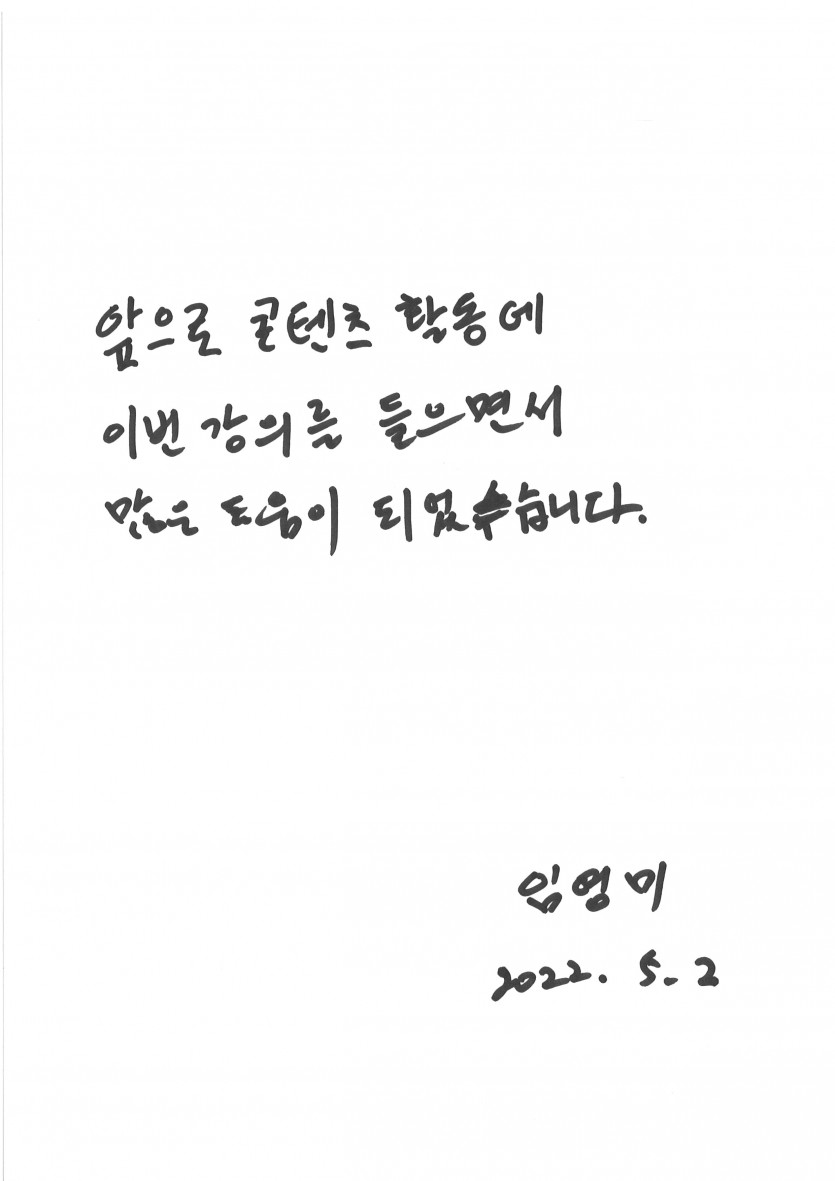 앞으로 콘텐츠 활동에
이번 강의를 들으면서
많은 도움이 되었습니다.
임영미
2022. 5. 2